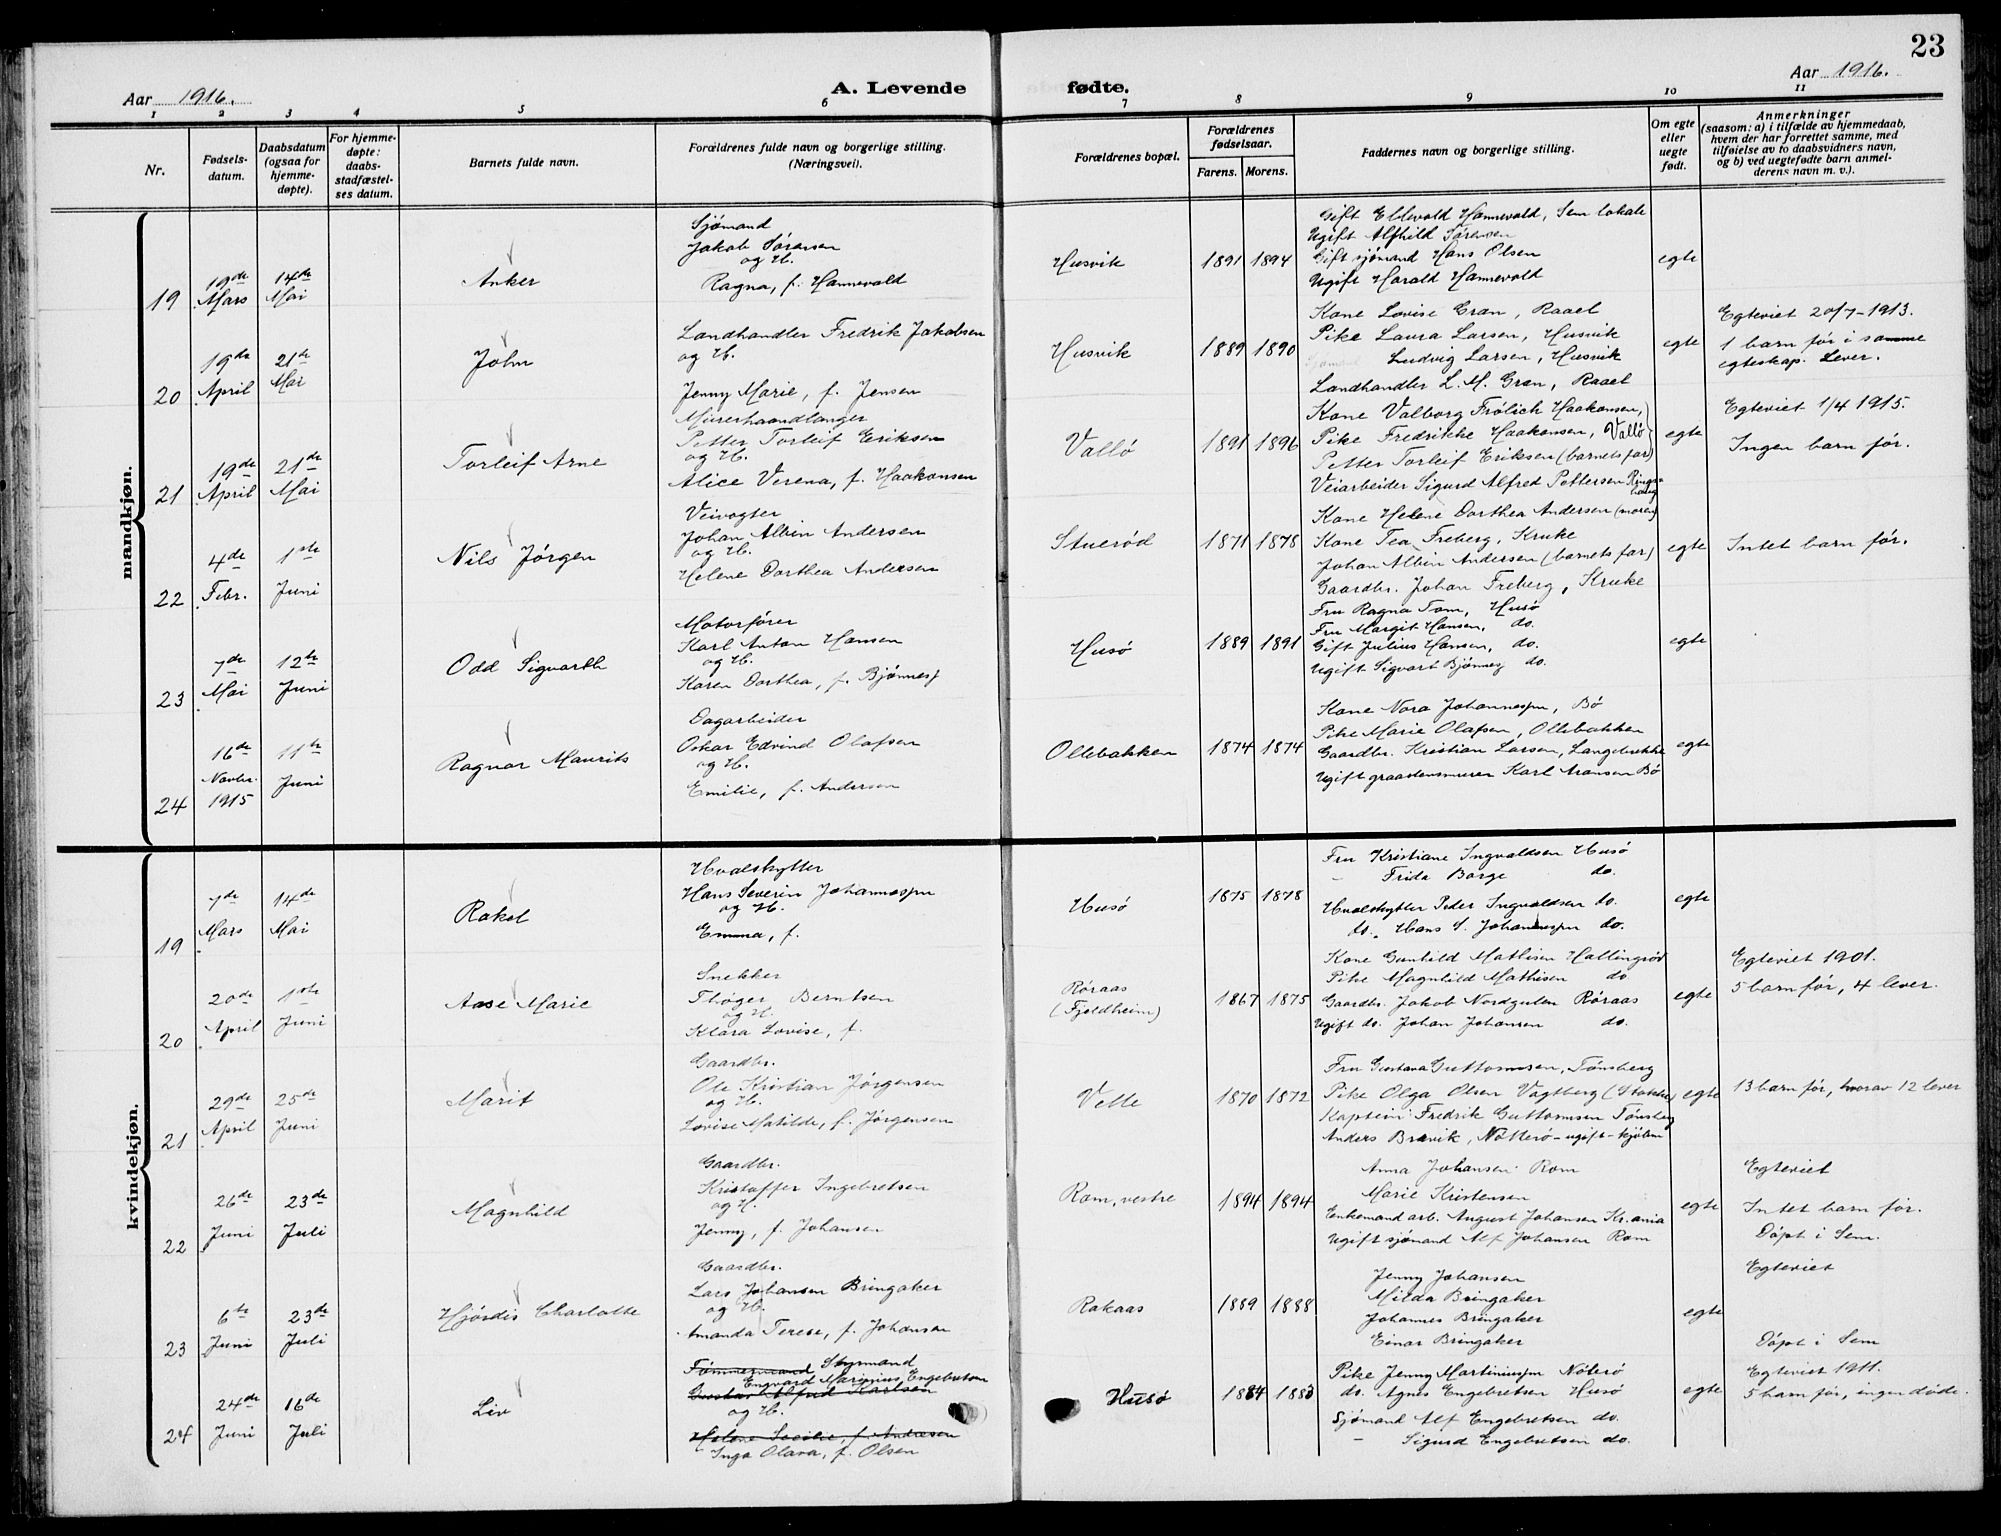 23
Aar 1916.
A. Levende
fødte.
Aar 1916.
1 2 3 4 5 6 7 8 9 10 11
Nr.
Fødsels-
datum.
Daabsdatum
(ogsaa for
hjemme-
døpte).
For hjemme-
døpte:
daabs-
stadfæstel-
ses datum.
Barnets fulde navn.
Forældrenes fulde navn og borgerlige stilling.
(Næringsvei).
Forældrenes bopæl.
Forældrenes
fødselsaar.
Farens. Morens.
Faddernes navn og borgerlige stilling.
Om egte
eller
uegte
født.
Anmerkninger
(saasom: a) i tilfælde av hjemmedaab,
hvem der har forrettet samme, med
tilføielse av to daabsvidners navn,
og b) ved uegtefødte barn anmel-
derens navn m. v.).
mandkjøn.
19
19de
Mars
14de
Mai
Anker
Sjømand
Jakob Sørensen
og H.
Ragna, f. Hannevold
Husvik
1891 1894
Gift Ellevold Hannevold, Sem lokale
Ugift Alfhild Sørensen
Gift sjømand Hans Olsen
Ugift Harald Hannevold
egte
20
19de
April
21de
Mai
John
Landhandler Fredrik Jakobsen
og H.
Jenny Marie, f. Jensen
Husvik
1889 1890
Kone Lovise Gran, Raael
Pike Laura Larsen, Husvik
Ludvig Larsen, Husvik
Landhandler L. M. Gran, Raael
egte
Egteviet 20/7-1913.
1 barn før i samme
egteskap. Lever.
21
19de
April
21de
Mai
Torleif Arne
Murerhaandlanger
Petter Torleif Eriksen
og H.
Alice Verena, f. Haakonsen
Vallø
1891 1896
Kone Valborg Frølich Haakonsen,
Pike Fredrikke Haakonsen, Vallø
Petter Torleif Eriksen (barnets far)
Veiarbeider Sigurd Alfred Pettersen Rings-
haug
egte
Egteviet 1/4 1915.
Ingen barn før.
22
4de
Febr.
1ste
Juni
Nils Jørgen
Veivogter
Johan Albin Andersen
og H.
Helene Dorthea Andersen
Stuerød
1871 1878
Kone Helene Dorthea Andersen (moren)
Kone Tea Freberg, Kruke
Johan Albin Andersen (barnets far)
Gaardbr. Johan Freberg, Kruke
egte
Intet barn før.
23
7de
Mai
12te
Juni
Odd Sigvarth
Motorfører
Karl Anton Hansen
og H.
Karen Dorthea, f. Bjønnes
Husø
1889 1891
Fru Ragna Tom, Husø
Fru Margit Hansen, do.
Gift Julius Hansen, do.
Ugift Sigvart Bjønnes do.
egte
24
16de
Novbr.
1915
11te
Juni
Ragnar Maurits
Dagarbeider
Oskar Edvind Olafsen
og H.
Emilie, f. Andersen
Ollebakken
1874 1874
Kone Nora Johannessen, Bø
Pike Marie Olafsen, Ollebakken
Gaardbr. Kristian Larsen, Langebrekke
Ugift graastensmurer Karl Aransen Bø
egte
kvindekjøn.
19
7de
Mars
14de
Mai
Rakel
Hvalskytter
Hans Severin Johannessen
og H.
Emma, f.
Husø
1875 1878
Fru Kristiane Ingvaldsen Husø
- Frida Borge do.
Hvalskytter Peder Ingvaldsen do.
do. Hans S. Johannessen do.
egte
20
20de
April
1ste
Juni
Aase Marie
Snekker
Thøger Berntsen
og H.
Klara Lovise, f.
Røraas
(Fjeldheim)
1867 1875
Kone Gunhild Mathisen Hallingrød
Pike Magnhild Mathisen do
Gaardbr. Jakob Nordgulen Røraas
Ugift do. Johan Johansen do.
egte
Egteviet 1901.
5 barn før, 4 lever.
21
29de
April
25de
Juni
Marit
Gaardbr.
Ole Kristian Jørgensen
og H.
Lovise Matilde, f. Jørgensen
Velle
1870 1872
Fru Gustava Guttormsen, Tønsberg
Pike Olga Olsen Vagtberg (Stokke)
Kaptein Fredrik Guttormsen Tønsberg
Anders Bravik, Nøtterø - ugift -
egte
13 barn før, hvorav 12 lever
22
26de
Juni
23de
Juli
Magnhild
Gaardbr.
Kristoffer Ingebretsen
og H.
Jenny, f. Johansen
Rom, vestre
1894 1894
Anna Johansen Rom
Marie Kristensen
Enkemand arb. August Johansen Kr.ania
Ugift sjømand Alf Johansen Rom
egte
Egteviet
Intet barn før.
Døpt i Sem.
23
6te
Juni
23de
Juli
Hjørdis Charlotte
Gaardbr.
Lars Johansen Bringaker
og H.
Amanda Terese, f. Johansen
Rakaas
1889 1888
Jenny Johansen
Milda Bringaker
Johannes Bringaker
Einar Bringaker
egte
Egteviet
Døpt i Sem
24
24de
Juni
16de
Juli
Liv
Tømmermand Styrmand
Engvard Marinius Engebretsen
Gustav Alfred Karlsen
og H.
Helene Secilie, f. Andresen
Inga Olava, f. Olsen
Husø
1884 1883
Pike Jenny Martiniussen Nøterø
do. Agnes Engebretsen Husø
Sjømand Alf Engebretsen do.
- Sigurd Engebretsen do.
egte
Egteviet 1911.
5 barn før, ingen døde.